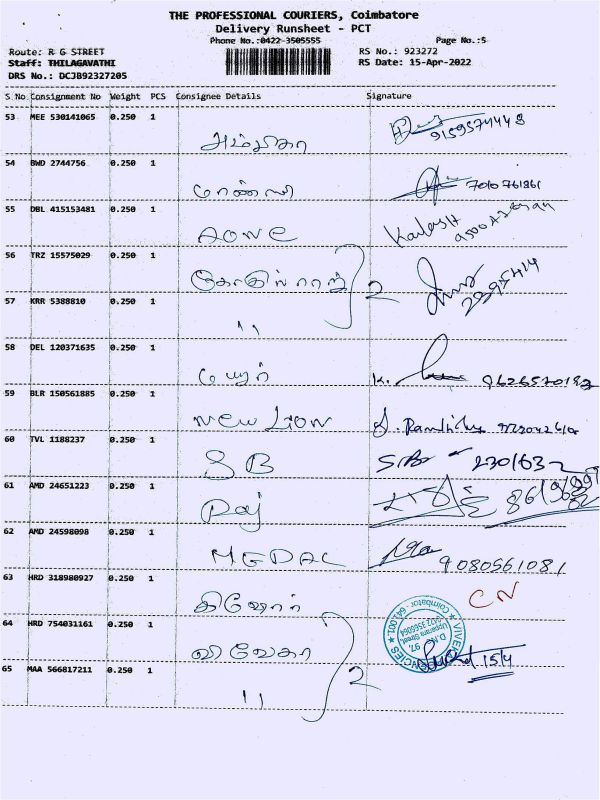 THE PROFESSIONAL COURIERS, Coimbatore
Delivery Runsheet - PCT
Phone No.:0422-3505555
Page No.:5
Route: R G STREET
RS No.: 923272
Staff: THILAGAVATHI
RS Date: 15-Apr-2022
DRS No.: DCJB92327205
S No Consignment No Weight PCS Consignee Details Signature
53 MEE 530141065 0.250 1
அம்பிகா 9159574448
54 BWD 2744756 0.250 1
7010761861
55 DBL 415153481 0.250 1
AONE Kailash
56 TRZ 15575029 0.250 1
2
57 KRR 5388810 0.250 1
"
58 DEL 120371635 0.250 1
K.
59 BLR 150561885 0.250 1
New Lion
60 TVL 1188237 0.250 1
SB 230/632
61 AMD 24651223 0.250 1
Raj
62 AMD 24598098 0.250 1
9080561081
63 HRD 318980927 0.250 1
கிஷோர் CN
64 HRD 754031161 0.250 1
விவேகா 2
65 MAA 566817211 0.250 1
" 15/4